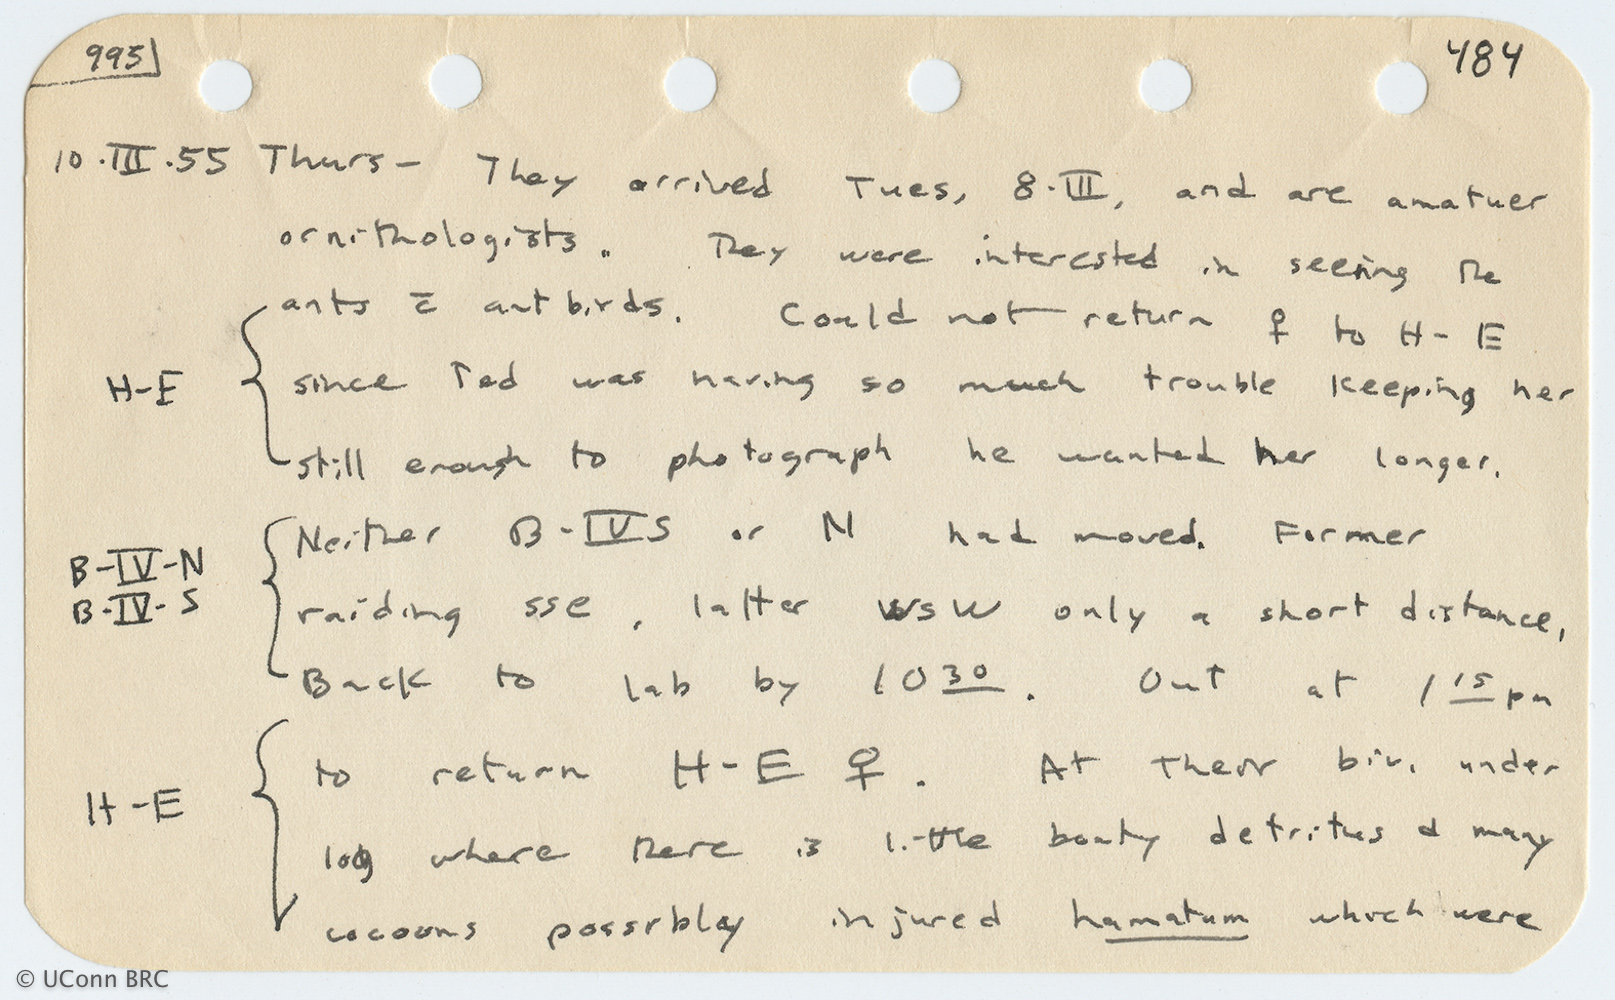 995
484
10.III.55 Thurs- They arrived Tues, 8.III, and are amatuer
ornithologists. They were interested in seeing the
ants c̄ antbirds. Could not return ♀ to H-E
H-E
since Ted was having so much trouble keeping her
still enough to photograph he wanted her longer.
Neither B-IVS or N had moved. Former
B-IV-N
B-IV-S
raiding sse, latter WSW only a short distance,
Back to lab by 10 30. Out at 1 15 pm
to return H-E ♀. At their biv. under
H-E
log where there is little booty detritus & many
cocoons possibly injured hamatum which were
© UConn BRC